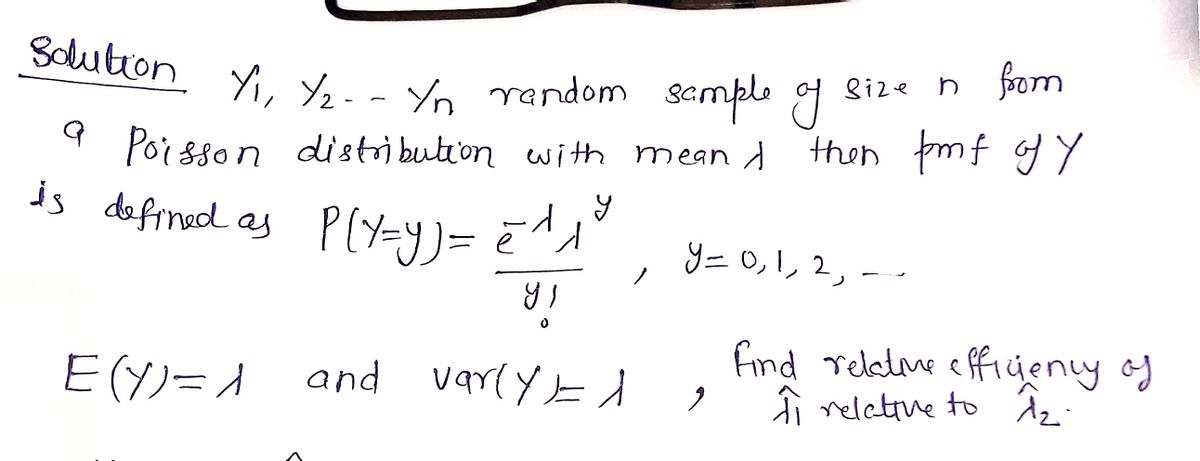 Solution Y1, Y2 - - Yn random sample of size n from
a Poisson distribution with mean λ then pmf of Y
is defined as P(Y=y) = e^-λ λ^y / y! , y = 0, 1, 2, ---
E(Y) = λ and var(Y) = λ , find relative efficiency of
λ̂1 relative to λ̂2.